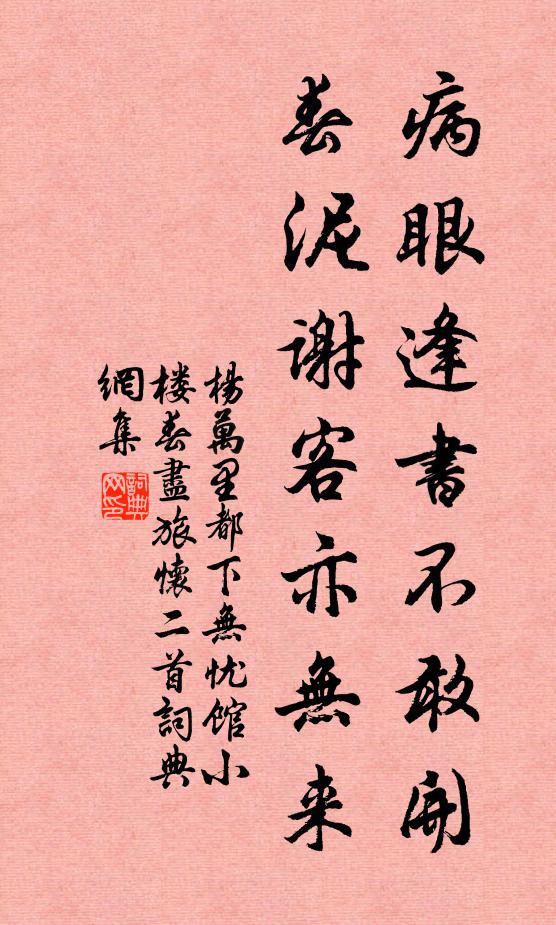 病眼逢書不敢開
春泥謝客亦無来
楊萬里都下無忧館小
楼春盡旅懷二首詞典
網集
詞典網印